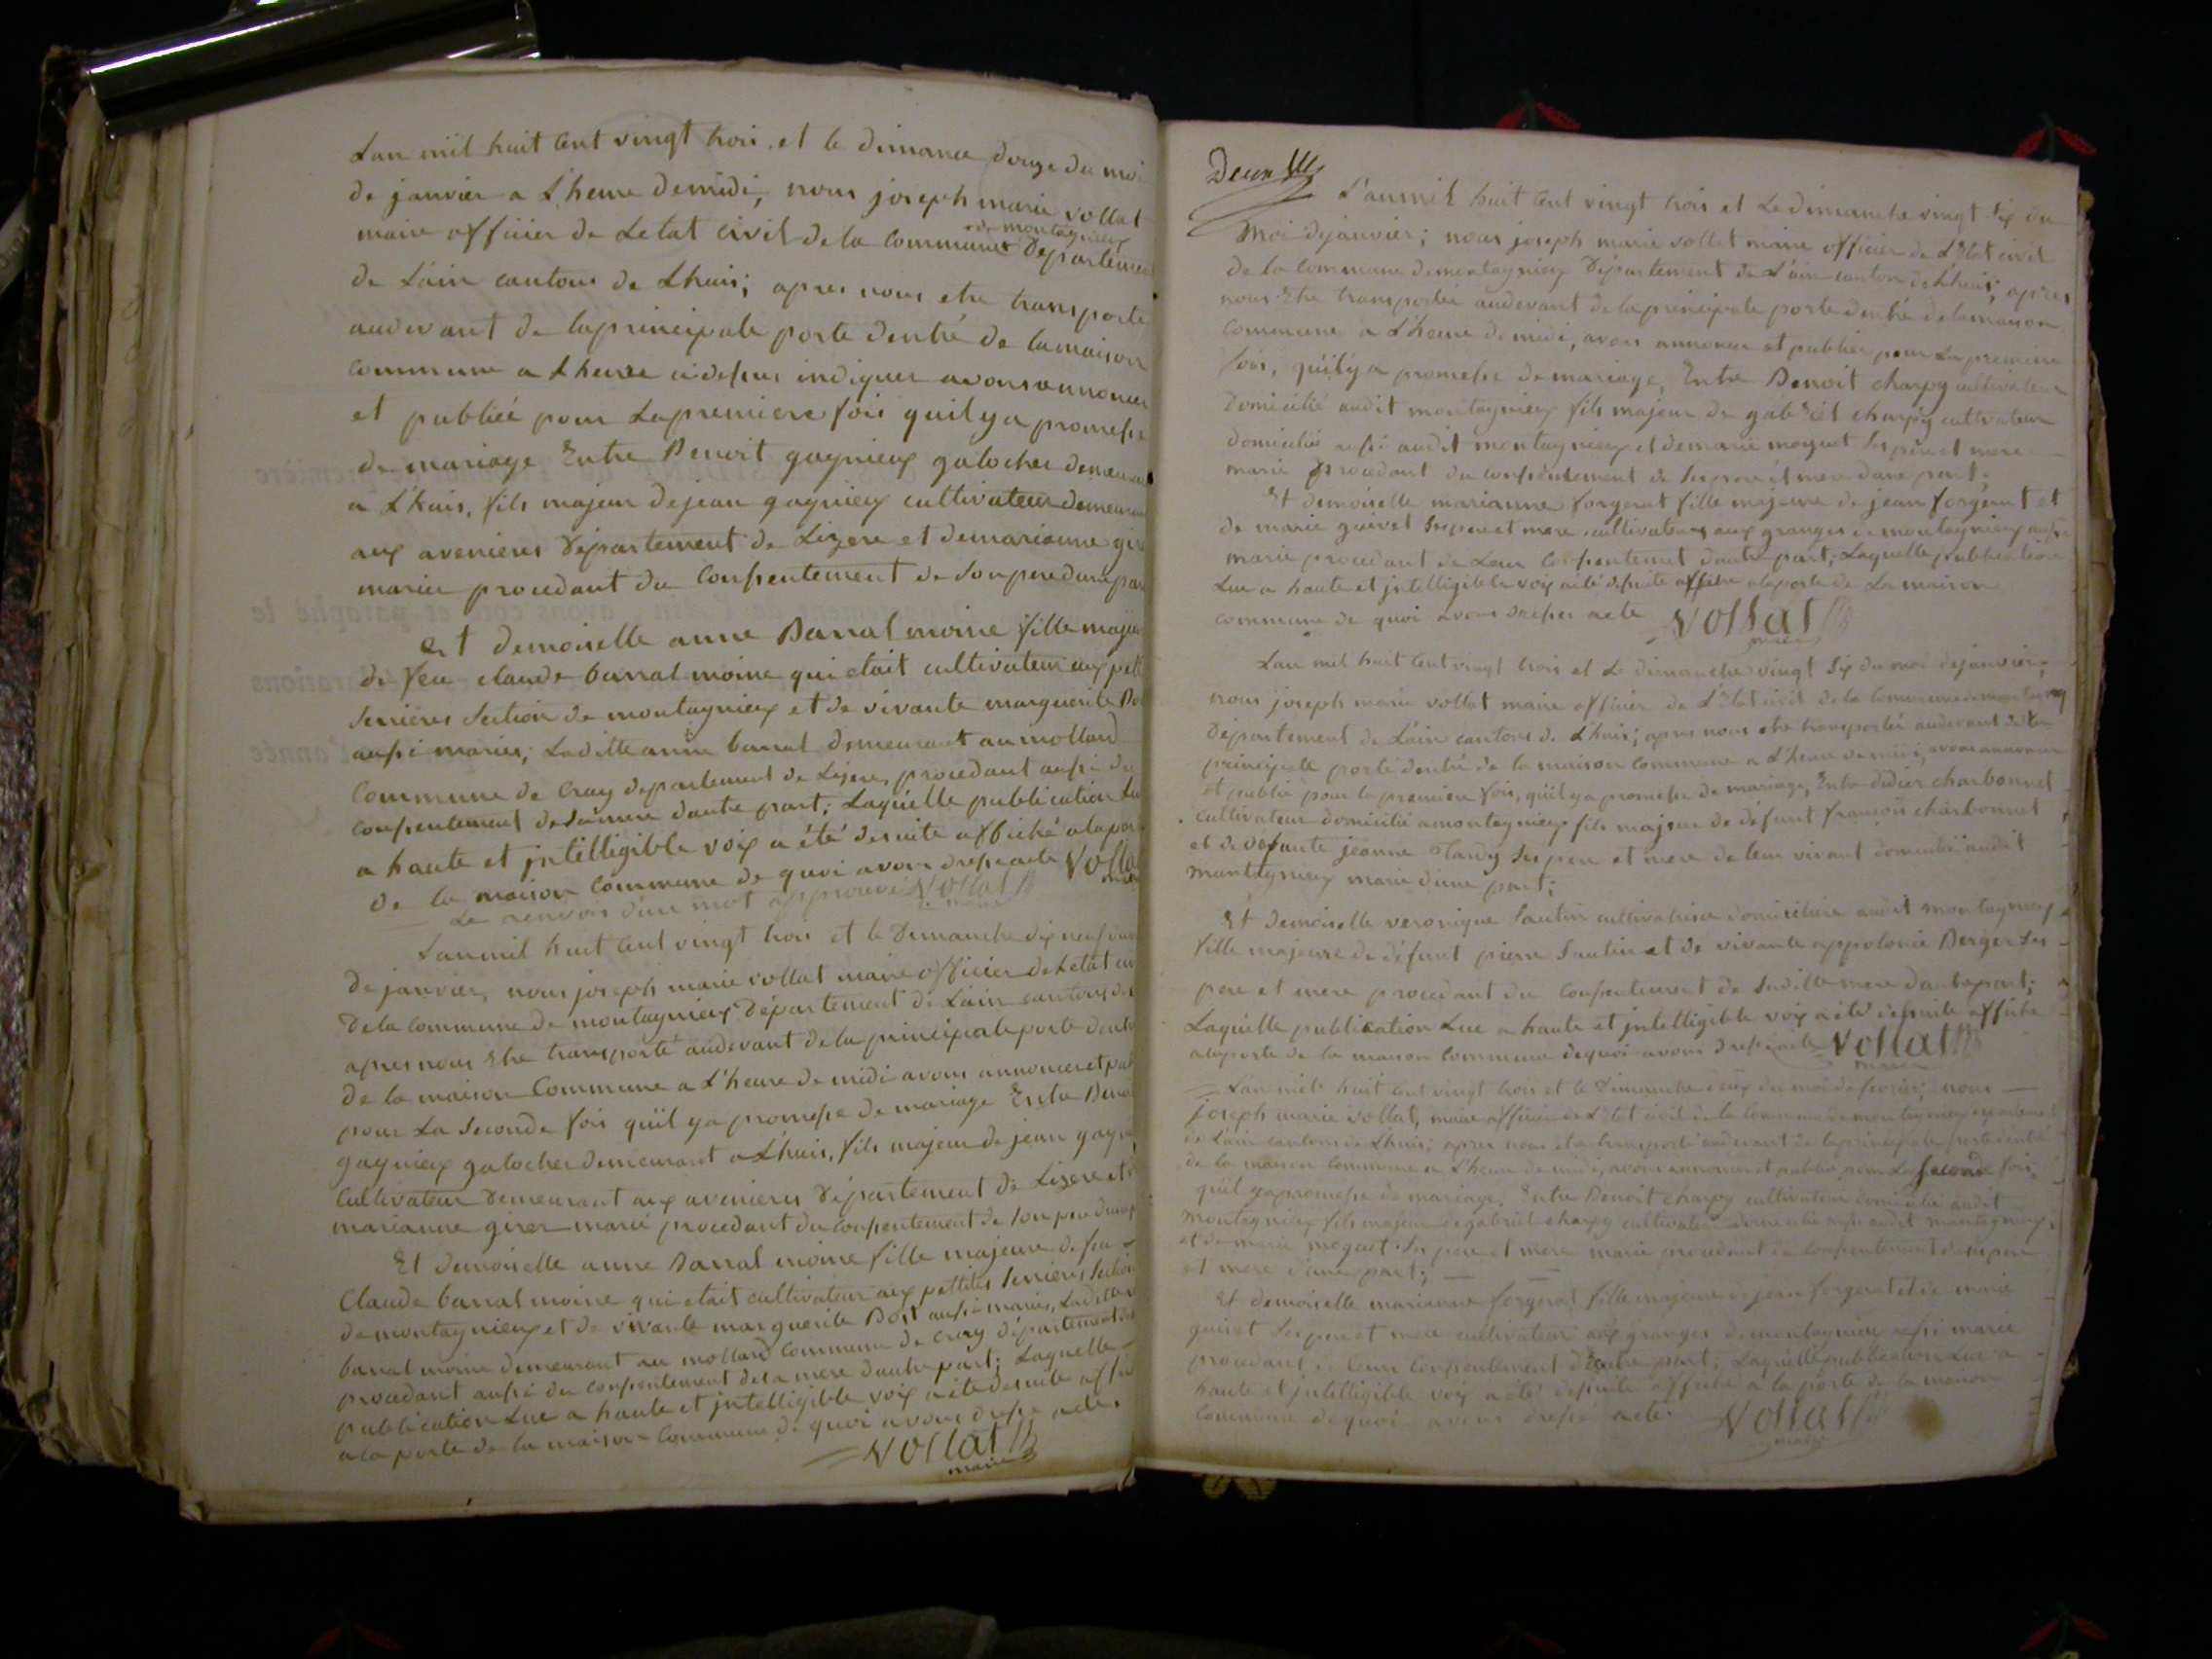 Lan mil huit cent vingt trois et le dimance douze du moi
de janvier a Lheure demidi, nous joseph marie vollat
maire officier de Letat civil de la commune Departemen
de montagnieu
de Lain cantons de Lhuis; apres nous etre transporte
audevant de laprincipale porte dentré de lamaison
commune a Lheure cidessus indiquer avons annoncer
et publiée pour Lapremiere fois quil ya promesse
de mariage Entre Benoit gagnieux galocher demeura
a Lhuis, fils majeur dejean gagnieux cultivateur demeuran
aux avenieres Departement de Lizere et demarianne gire
mariée procedant du Consentement de son pere dune par
et demoiselle anne Barral moine fille majeur
de feu claude barral moine qui etait cultivateur aux peti
serrieres section de montagnieux et de vivante marguerite Bo
aussi mariés; Laditte anne barral demeurant au mollard
Commune de Cray departement de Lizere, procedant aussi du
consentement desamere dautre part; Laquelle publication Lu
a haute et jntelligible voix a été desuite affiché alapor
de la maison commune de quoi avons dressé acte Vollat
Le renvois dun mot approuvé Vollat
maire
Lanmil huit cent vingt trois et le Dimanche dix neuf du
de janvier, nous joseph marie vollat maire officier deLetat civ
De la commune de montagnieux Departement de Lain cantons de
apres nous Etre transporté audevant de la principale porte dentr
de la maison Commune a L'heure de midi avons annoncer et pub
pour La Seconde fois quil ya promesse de mariage Entre Beno
gagnieux galocher demeurant a Lhuis, fils majeur de jean gagn
Cultivateur Demeurant aux avenieres Departement de Lizere et d
marianne girer marié procedant du consentement de son pere dune p
Et demoiselle anne Barral moine fille majeure de feu
Claude barral moine qui etait cultivateur aux pettites serrieres Section
de montagnieux et de vivante marguerite Bost aussi mariés, Laditte
barral moine demeurant au mollard commune de Cray departement de
procedant aussi du consentement de sa mere dautre part; Laquelle
publication Lue a haute et jntelligible voix a été desuite affi
a la porte de la maison commune de quoi avons dressé acte.
Vollat
maire
Deux
L'anmil huit cent vingt trois et Le dimanche vingt six du
Moi dejanvier; nous joseph marie vollat maire officier de L'Etat civil
de la commune de montagnieux Departement de L'ain canton de Lhuis; apres
nous Etre transportée audevant de laprincipale porte dentré delamaison
commune a L'heure de midi, avons annoncer et publiée pour La premiere
fois, quil y a promesse de mariage, Entre Benoit charpy cultivateur
Domicilié audit montagnieux fils majeur de gabriel charpy cultivateur
domicilié aussi audit montagnieux et de marie moguet Ses pere et mere
marié procedant du consentement de Ses pere et mere dune part;
Et demoiselle marianne forgerat fille majeure de jean forgerat et
de marie guivet Ses pere et mere cultivateurs aux granges de montagnieux aussi
marié procedant de Leur Consentement dautre part; Laquelle publication
Lue a haute et jntelligible voix a été desuite affiché a la porte de La maison
commune de quoi avons dressés acte Vollat
maire
Lan mil huit cent vingt trois et Le dimanche vingt six du moi de janvier,
nous joseph marie vollat maire officier de L'Etat civil de la commune de montag
Departement de Lain cantons de Lhuis; apres nous etre transportée audevant de la
principale porte dentré de la maison commune a L'heure de midi; avons annoncer
et publié pour la premiere fois, quil ya promesse de mariage, Entre didier charbonnet
cultivateur domicilié amontagnieux fils majeur de défunt francois charbonnet
et de defunte jeanne Tardy Ses pere et mere de leur vivant domicilié audit
montagnieux marié dune part;
Et demoiselle veronique Sautin cultivatrice domiciliée audit montagnieux
fille majeure de défunt pierre Sautin et de vivante appolonie Berger Ses
pere et mere procedant du consentement de Saditte mere dautre part;
Laquelle publication Lue a haute et jntelligible voix a été desuite affiché
a la porte de la maison commune dequoi avons dressé acte Vollat
maire
Lan mil huit cent vingt trois et le Dimanche deux du moi de fevrier, nous
joseph marie vollat, maire officier de L'Etat civil de la commune de montagnieux departement
de Lain cantons de Lhuis; apres nous etre transporté audevant de la principale porte dentré
de la maison commune a L'heure de midi, avons annoncer et publié pour La Seconde fois,
quil ya promesse de mariage, Entre Benoit charpy cultivateur domicilié audit
montagnieux fils majeur de gabriel charpy cultivateur domicilié aussi audit montagnieux,
et de marie moguet Ses pere et mere marié procedant du consentement de Ses pere
et mere dune part;
Et demoiselle marianne forgerat fille majeure de jean forgerat et de marie
guivet Ses pere et mere cultivateur aux granges demontagnieu aussi marié
procedant de leur Consentement Dautre part; Laquelle publication Lue a
haute et jntelligible voix a été desuite affiché a la porte de la maison
commune de quoi avons dressé acte. Vollat
maire